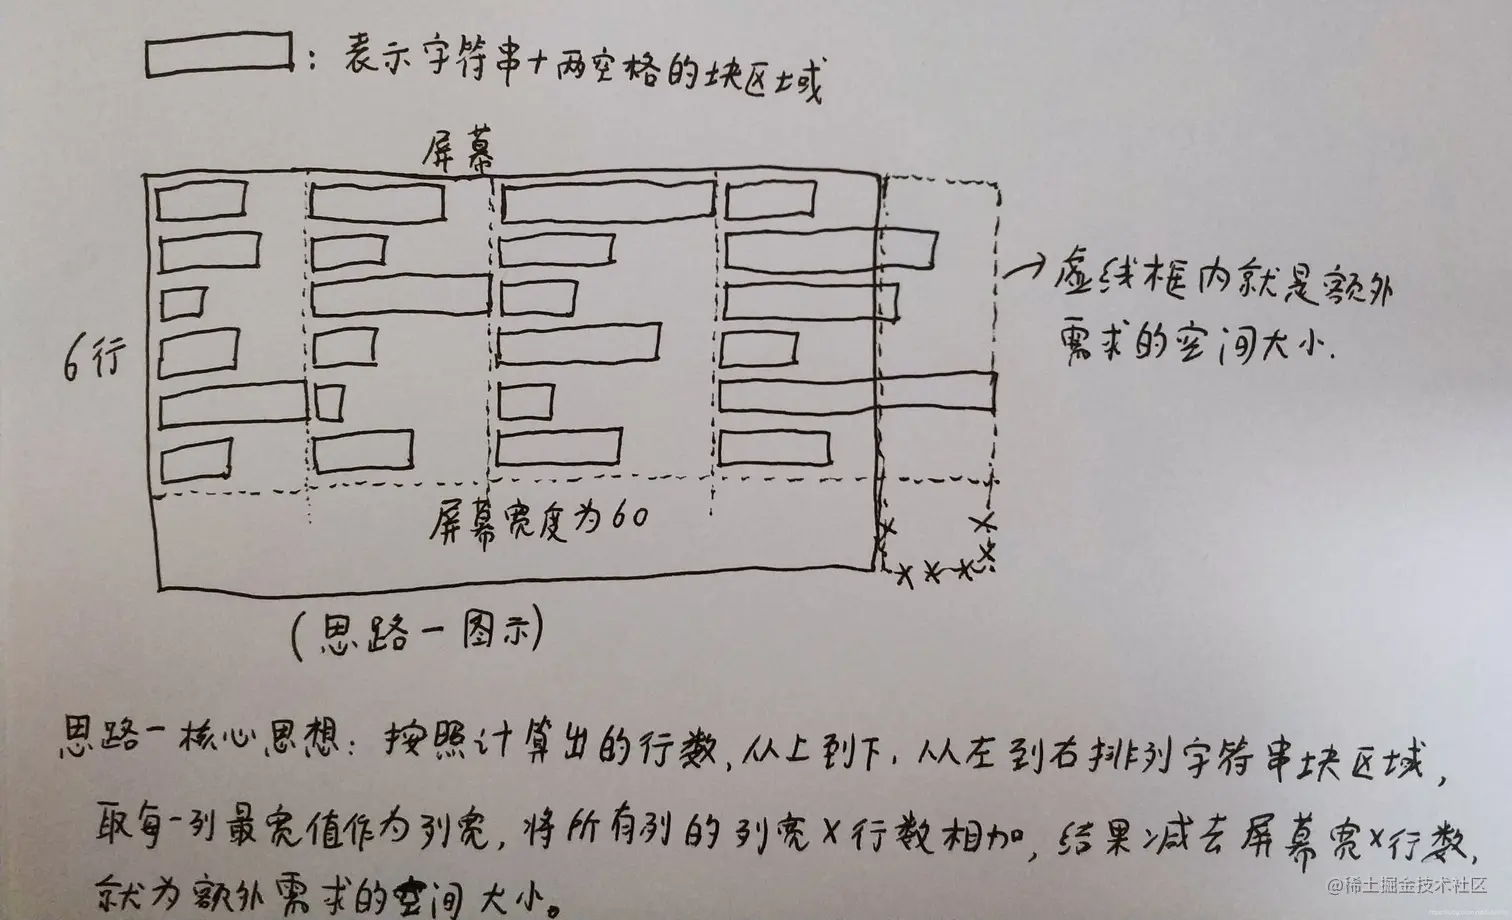 ：表示字符串+两空格的块区域
屏幕
6行
虚线框内就是额外
需求的空间大小.
屏幕宽度为60
(思路一图示)
思路一核心思想：按照计算出的行数,从上到下,从左到右排列字符串块区域,
取每一列最宽值作为列宽,将所有列的列宽×行数相加,结果减去屏幕宽×行数,
就为额外需求的空间大小。
@稀土掘金技术社区